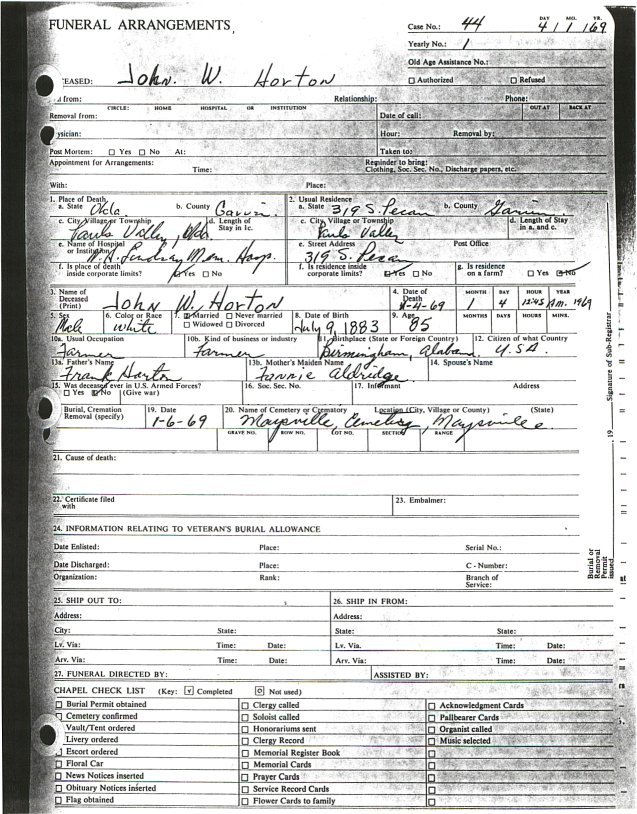 FUNERAL ARRANGEMENTS,
Case No.: 44
DAY MO. YR.
4 / 1 / 69
Yearly No.: 1
Old Age Assistance No.:
CEASED: John. W. Horton
☐ Authorized ☐ Refused
d from: Relationship: Phone:
CIRCLE: HOME HOSPITAL OR INSTITUTION OUT AT BACK AT
Removal from: Date of call:
ysician: Hour: Removal by:
Post Mortem: ☐ Yes ☐ No At: Taken to:
Appointment for Arrangements: Time: Reminder to bring:
Clothing, Soc. Sec. No., Discharge papers, etc.
With: Place:
1. Place of Death 2. Usual Residence
a. State Okla b. County Garvin a. State 319 S. Pecan b. County Garvin
c. City, Village or Township d. Length of Stay in 1c. c. City, Village or Township d. Length of Stay in a. and c.
Pauls Valley, Okla Pauls Valley
e. Name of Hospital or Institution e. Street Address Post Office
Lindsay Mem. Hosp. 319 S. Pecan
f. Is place of death inside corporate limits? ☑ Yes ☐ No f. Is residence inside corporate limits? ☑ Yes ☐ No g. Is residence on a farm? ☐ Yes ☑ No
3. Name of Deceased (Print) John W. Horton 4. Date of Death 1-4-69
MONTH DAY HOUR YEAR
1 4 1245 Am. 1969
5. Sex 6. Color or Race 7. ☑ Married ☐ Never married 8. Date of Birth 9. Age MONTHS DAYS HOURS MINS.
Male White ☐ Widowed ☐ Divorced July 9, 1883 85
10a. Usual Occupation 10b. Kind of business or industry 11. Birthplace (State or Foreign Country) 12. Citizen of what Country
Farmer Farmer Birmingham, Alabama USA
13a. Father's Name 13b. Mother's Maiden Name 14. Spouse's Name
Frank Horton Fannie Aldridge
15. Was deceased ever in U.S. Armed Forces? 16. Soc. Sec. No. 17. Informant Address
☐ Yes ☑ No (Give war)
Burial, Cremation 19. Date 20. Name of Cemetery or Crematory Location (City, Village or County) (State)
Removal (specify) 1-6-69 Maysville, Cemetery, Maysville
GRAVE NO. ROW NO. LOT NO. SECTION RANGE
21. Cause of death:
22. Certificate filed with 23. Embalmer:
24. INFORMATION RELATING TO VETERAN'S BURIAL ALLOWANCE
Date Enlisted: Place: Serial No.:
Date Discharged: Place: C - Number:
Organization: Rank: Branch of Service:
25. SHIP OUT TO: 26. SHIP IN FROM:
Address: Address:
City: State: State: State:
Lv. Via: Time: Date: Lv. Via: Time: Date:
Arv. Via: Time: Date: Arv. Via: Time: Date:
27. FUNERAL DIRECTED BY: ASSISTED BY:
CHAPEL CHECK LIST (Key: √ Completed O Not used)
☐ Burial Permit obtained ☐ Clergy called ☐ Acknowledgment Cards
☐ Cemetery confirmed ☐ Soloist called ☐ Pallbearer Cards
Vault/Tent ordered ☐ Honorariums sent ☐ Organist called
Livery ordered ☐ Clergy Record ☐ Music selected
Escort ordered ☐ Memorial Register Book ☐
☐ Floral Car ☐ Memorial Cards ☐
☐ News Notices inserted ☐ Prayer Cards ☐
☐ Obituary Notices inserted ☐ Service Record Cards ☐
☐ Flag obtained ☐ Flower Cards to family ☐
Signature of Sub-Registrar
19
Burial or Removal Permit issued